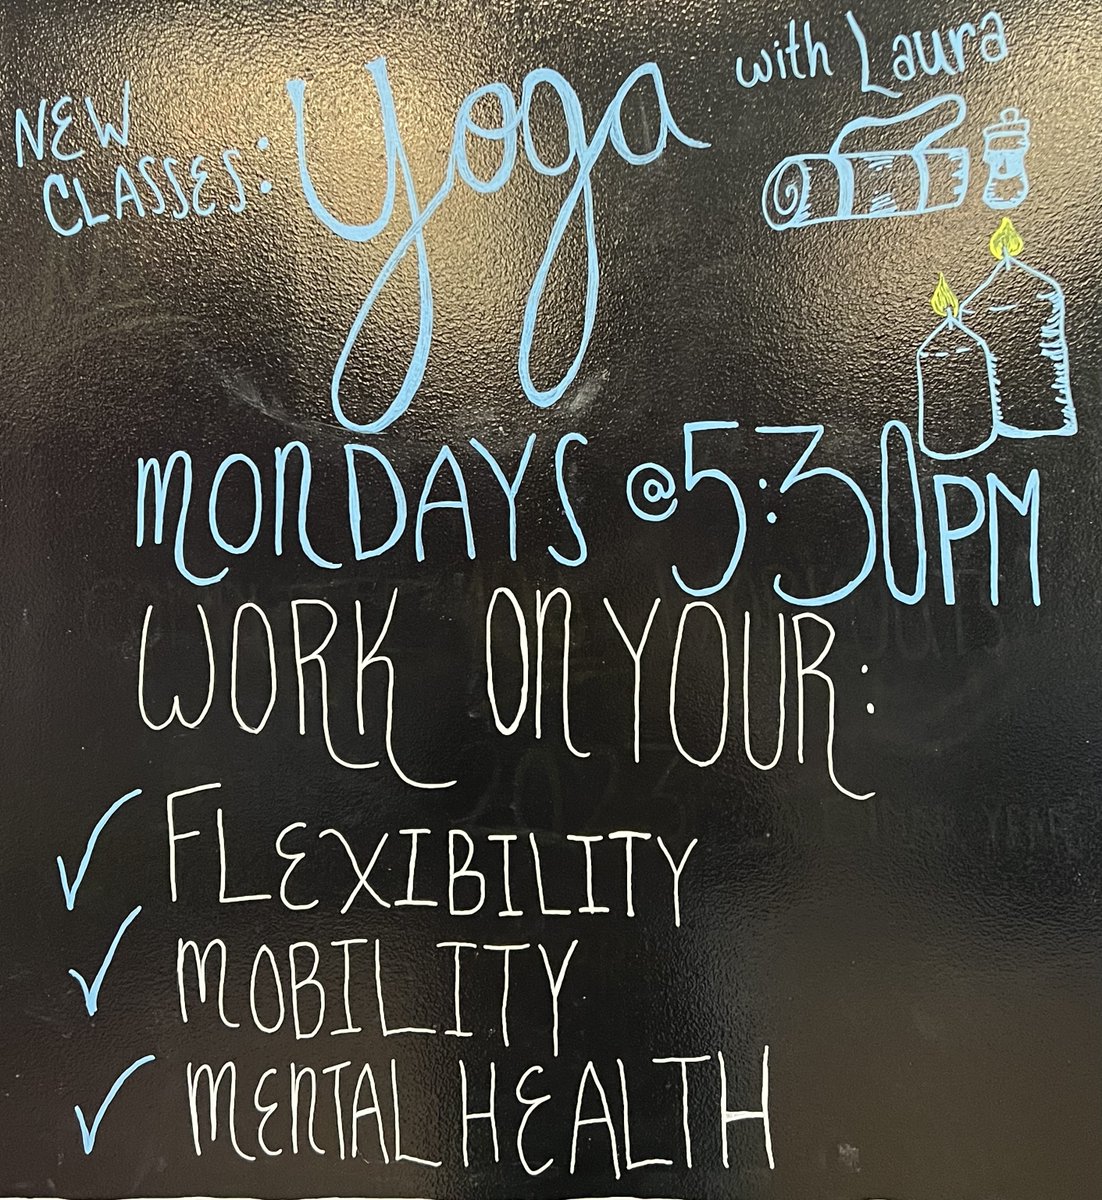 NEW
CLASSES: Yoga with Laura
MONDAYS @ 5:30PM
WORK ON YOUR:
✓ FLEXIBILITY
✓ MOBILITY
✓ MENTAL HEALTH